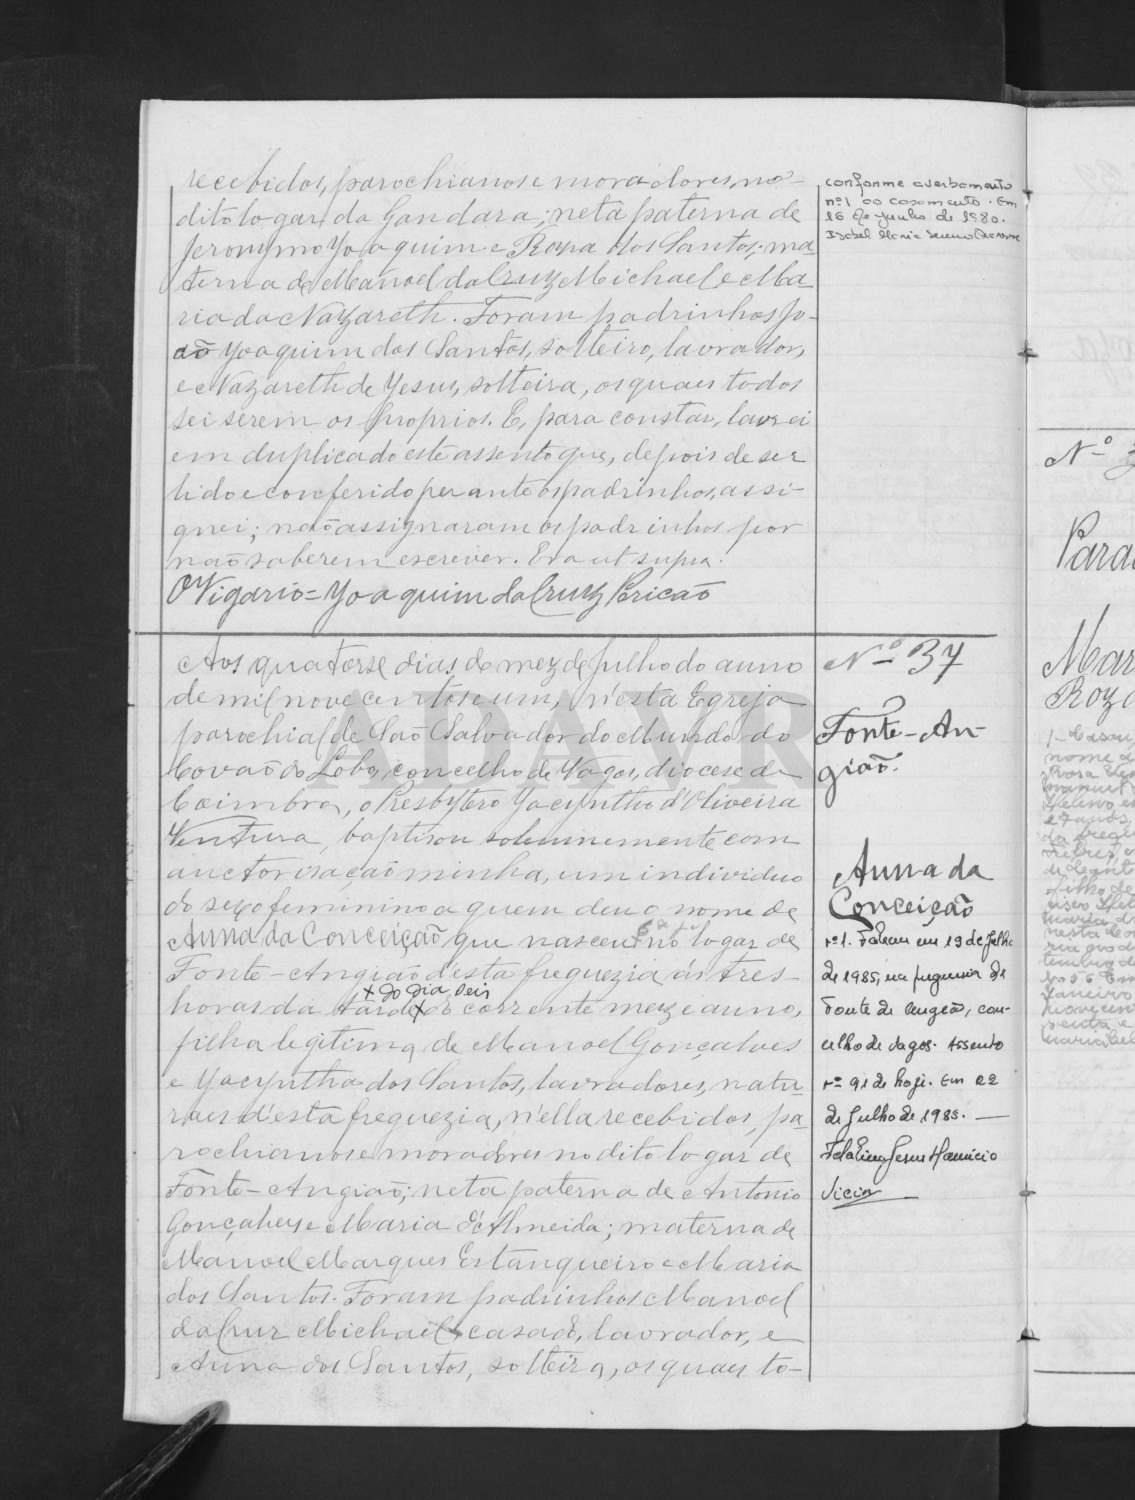 recebidos, parochianos e moradores, no
dito logar da Gandara; neta paterna de
Jeronymo Joaquim e Roza dos Santos; ma-
terna de Manoel da Cruz Michael e Ma-
ria da Nazareth. Foram padrinhos Jo-
ão Joaquim dos Santos, solteiro, lavrador,
e Nazareth de Jesus, solteira, os quaes todos
sei serem os proprios. E, para constar, lavrei
em duplicado este assento que, depois de ser
lido e conferido perante os padrinhos, assi-
gnei; não assignaram os padrinhos por
não saberem escrever. Era ut supra.
O Vigario = Joaquim da Cruz Pericão
conforme averbamento
nº 1 ao casamento. Em
16 de Junho de 1980.
Isabel Maria
Aos quatorse dias do mez de Julho do anno
de mil nove centos e um, n'esta Egreja
parochial de São Salvador do Mundo, do
Covão do Lobo, concelho de Vagos, diocese de
Coimbra, o Presbytero Jacyntho d'Oliveira
Ventura, baptisou solemnemente com
auctorisação minha, um individuo
do sexo feminino a quem deu o nome de
Anna da Conceição que nasceu no logar de
Fonte-Angião d'esta freguezia ás tres
+ do dia seis
horas da tarde + do corrente mez e anno,
filha legitima de Manoel Gonçalves
e Jacyntha dos Santos, lavradores, natu-
raes d'esta freguezia, n'ella recebidos, pa-
rochianos e moradores no dito logar de
Fonte-Angião; neta paterna de Antonio
Gonçalves e Maria d'Almeida; materna de
Manoel Marques Estanqueiro e Maria
dos Santos. Foram padrinhos Manoel
da Cruz Michael, casado, lavrador, e
Anna dos Santos, solteira, os quaes to-
Nº 37
Fonte-An-
gião.
Anna da
Conceição
nº 1. Faleceu em 19 de Julho
de 1985, na freguesia de
Fonte de Angeão, con-
celho de Vagos. Assento
nº 91 de hoje. Em 22
de Julho de 1985.
ADAVR
Nº
Mar
Roza